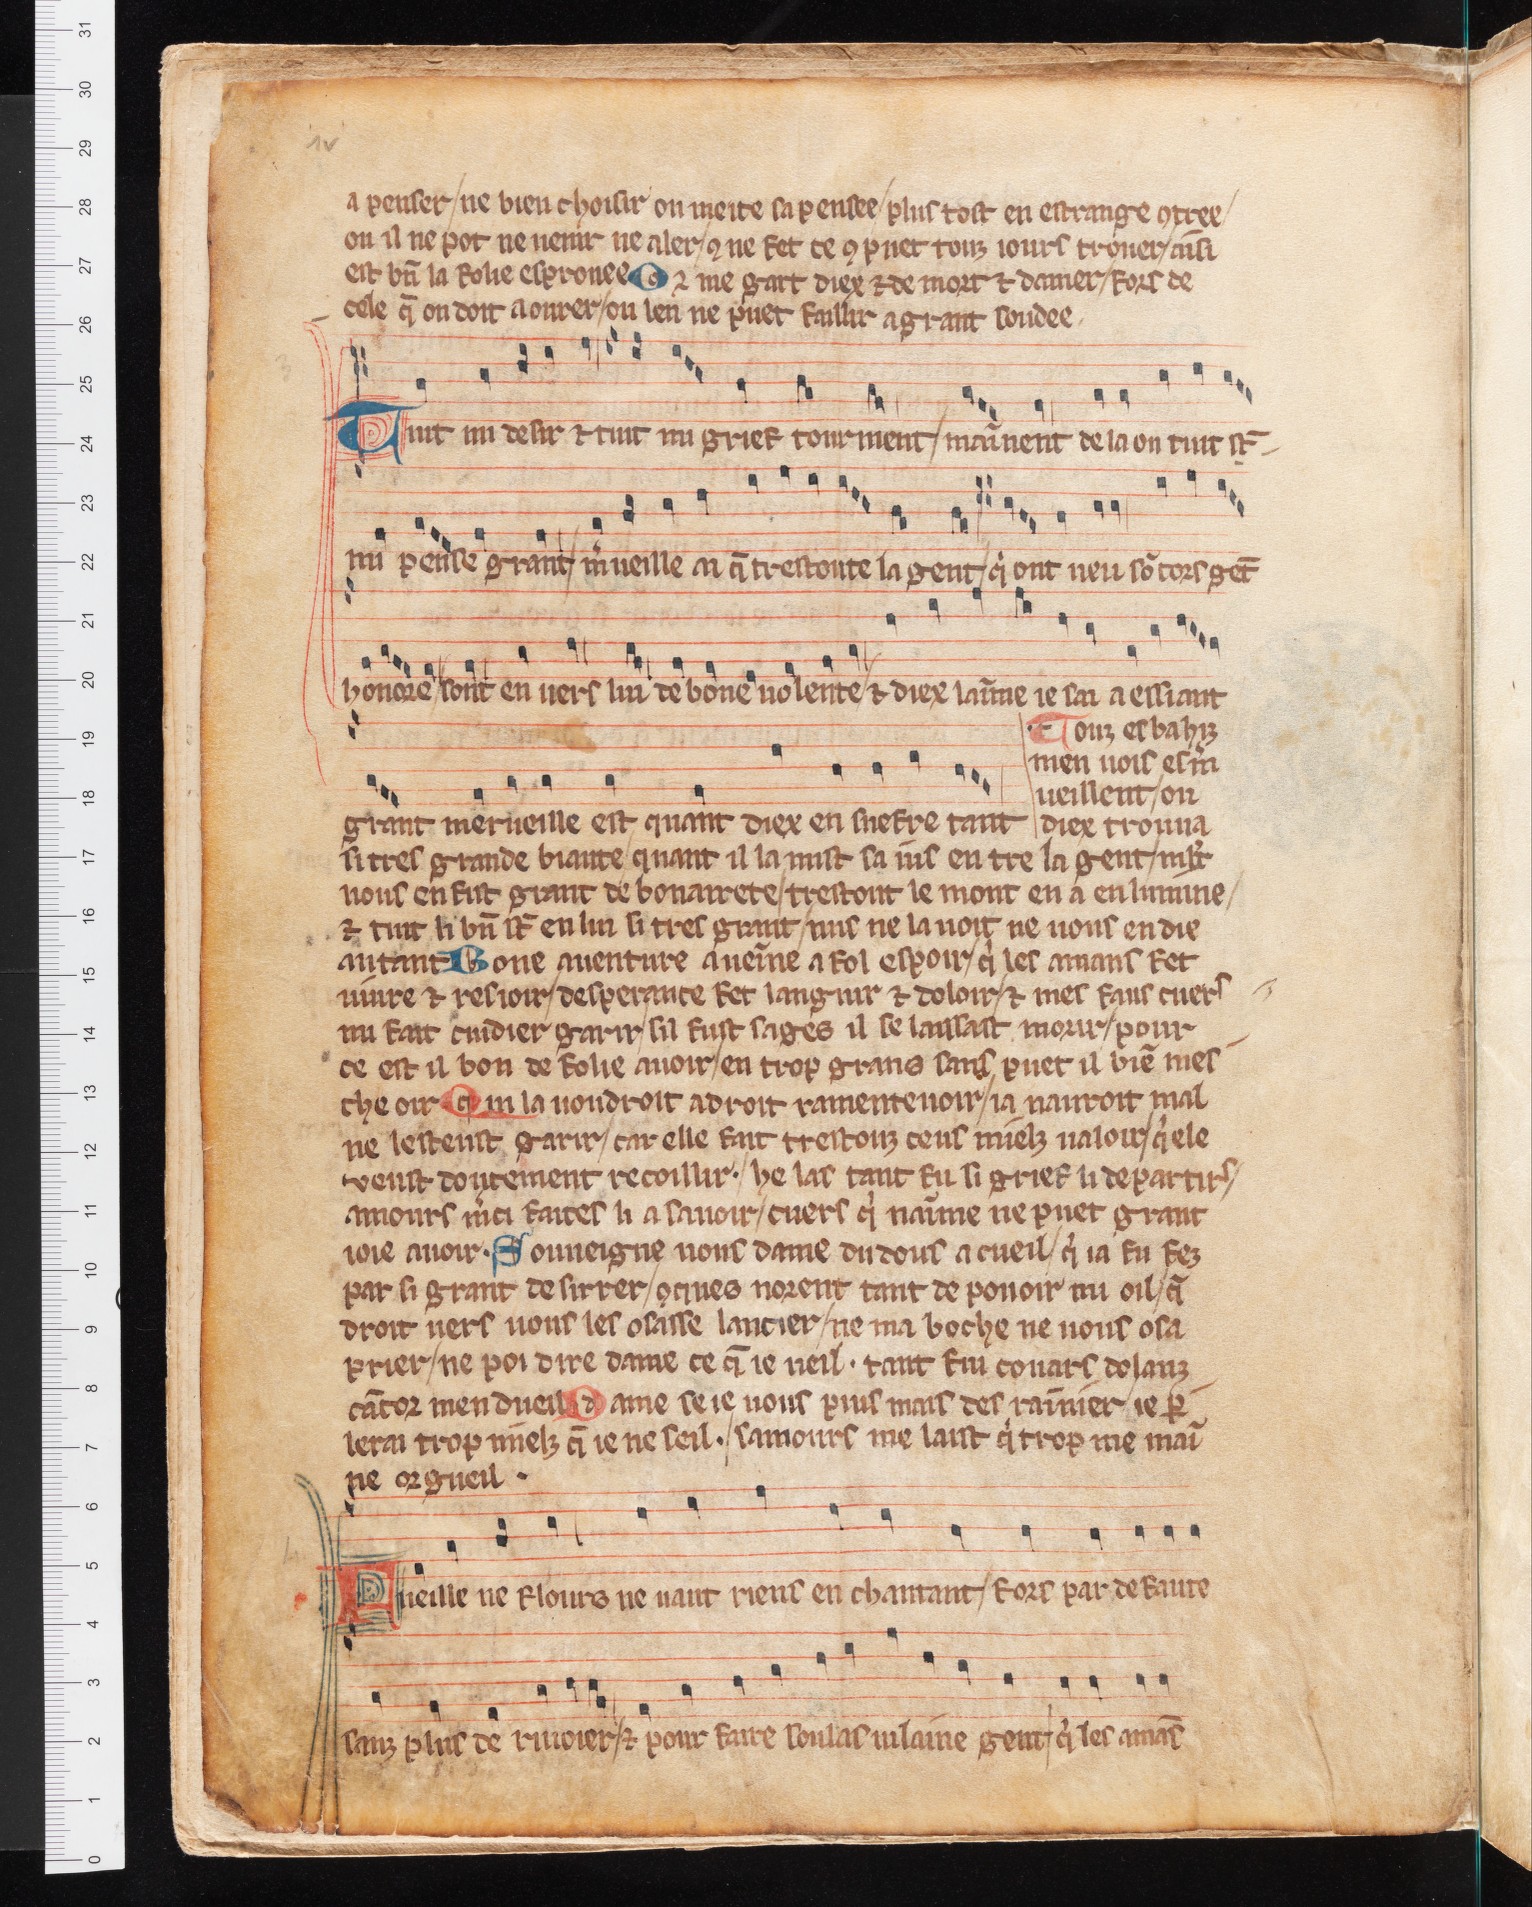 1v
a penser/ne bien choisir ou meite sa pensee/plus tost en estrange ꝯtree/
ou il ne pot ne uenir ne aler/ꝯ ne fet ce ꝯ puet touz iours trouer/ausi
est bn̄ la folie esprouee O ꝛ me gart diex ⁊ de mort ⁊ damer/fors de
cele q̄ on doit aourer/ou len ne puet faillir a grant soudee.
3
Tuit mi desir ⁊ tuit mi grief tourment/maūnent de la ou tuit st̄
mi pense grant/mͥueille ai q̄ trestoute la gent/qͥ ont ueu sō cors get̄
honore/sont en uers lui de bone uolente/⁊ diex laūme ie sai a essiant
Touz esbahiz
men uois esm̾
ueillent/ou
grant merueille est quant diex en suefre tant diex trouua
si tres grande biaute/quant il la mist sa ius en tre la gent/mlt̄
uous en fist grant de bonairete/trestout le mont en a enlumine/
⁊ tuit li bn̄ st̄ en lui si tres grant/nus ne la uoit ne uous en die
autant Bone auenture aueīne a fol espoir/qͥ les amans fet
uiure ⁊ resioir/desperance fet languir ⁊ doloir/⁊ mes faus cuers
mi fait cuidier garir/sil fust sages il se laissast morir/pour
ce est il bon de folie auoir/en trop grans sans puet il biē mes
che oir Qui la uoudroit a droit ramenteuoir/ia nauroit mal
ne lesteust garir/car elle fait trestouz ceus mielz ualoir/qͥ ele
veust doucement recoillir./he las tant fu si grief li departirs/
amours mͥci faites li a sauoir/cuers qͥ naūme ne puet grant
ioie auoir. Souueigne uous dame du dous acueil/qͥ ia fu fez
par si grant desirrer/ꝯques norent tant de pouoir mi oil/q̄
droit uers uous les osasse lancier/ne ma boche ne uous osa
prier/ne poi dire dame ce q̄ ie ueil. tant fui couars dolanz
cātor men dueil Dame se ie uous puis mais des rainier ie ꝑ
lerai trop mielz q̄ ie ne seil./samours me laist qͥ trop me mai
ne orgueil.
4
Fueille ne flours ne uaut riens en chantant/fors par defaute
sanz plus de rimoier/⁊ pour faire soulas uilaine gent/qͥ les amās